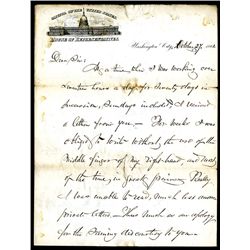 CAPITOL OF THE UNITED STATES
HOUSE OF REPRESENTATIVES
Washington City, October 27, 188
Dear Sir:
At a time when I was working over
seventeen hours a day for seventy days in
succession, Sundays included, I received
a letter from you. For weeks I was
obliged to write without the use of the
middle finger of my right hand, and most
of the time, in great pain.
I was unable to read, much less answer
private letters. Thus much as an apology
for the seeming discourtesy to you.